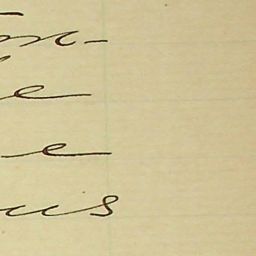 on-
e
e
us